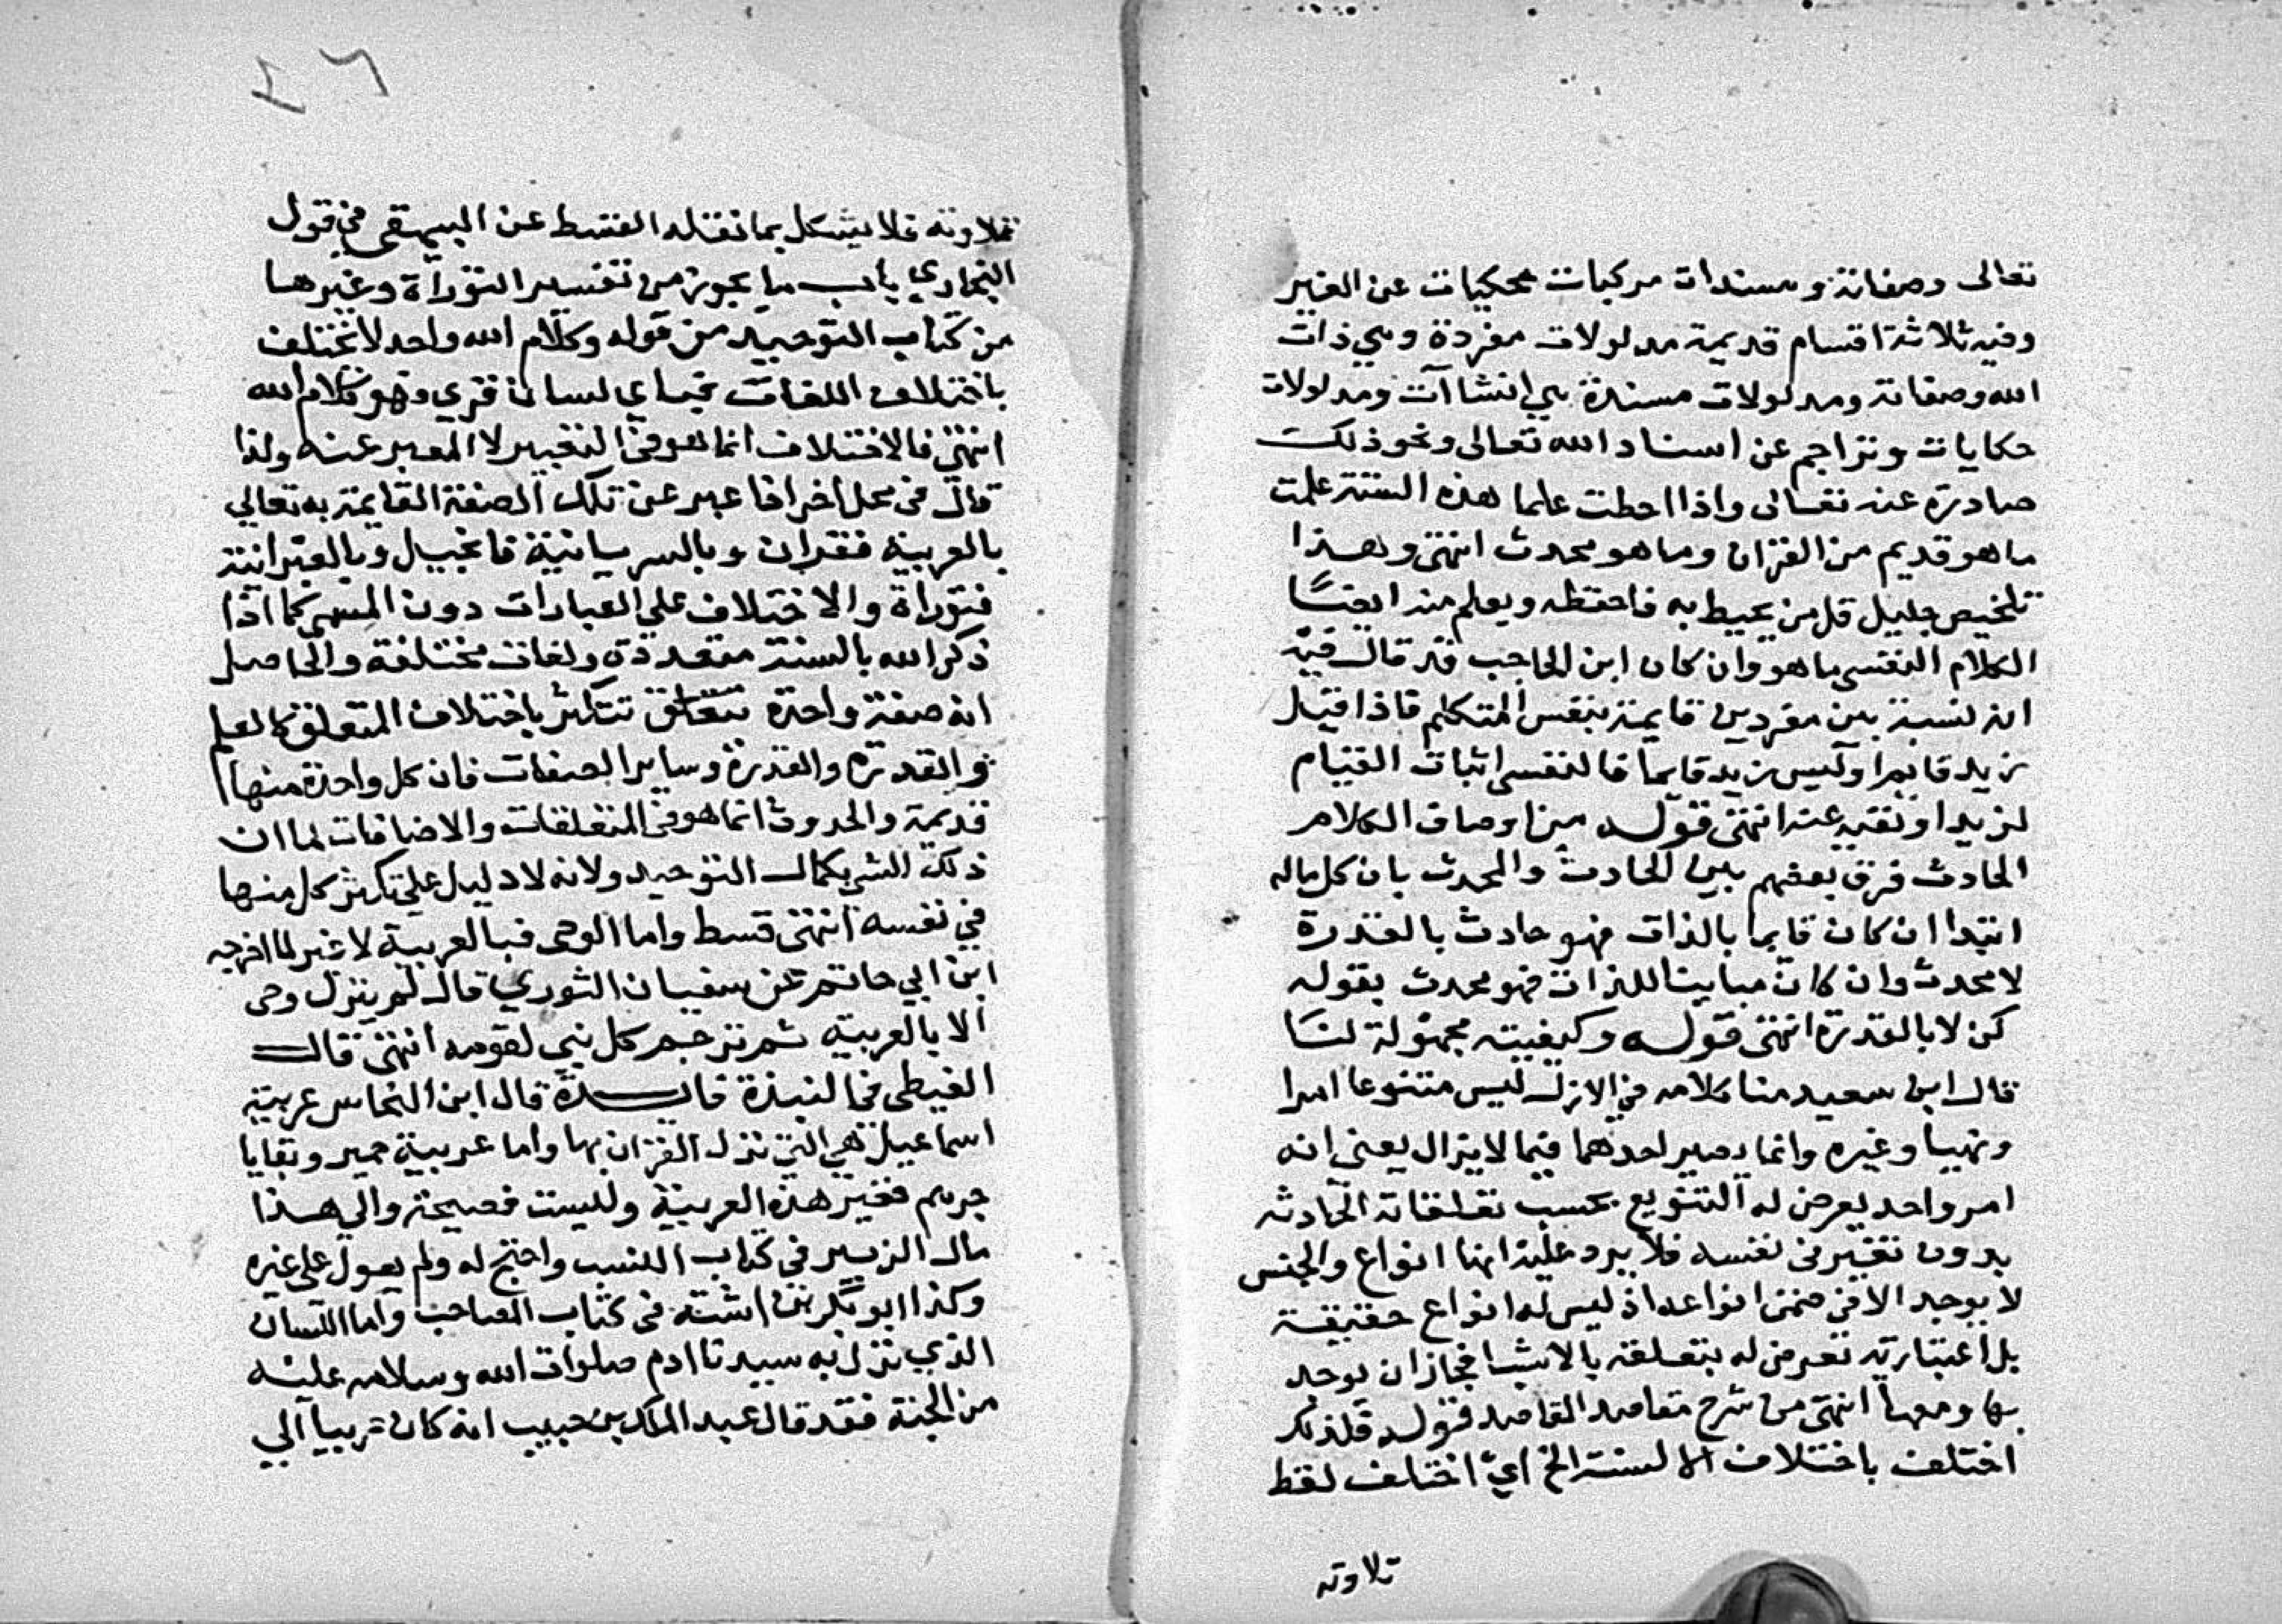 تعالى وصفاته ومسندات مركبات محكيات عن الغير
وفيه ثلاثة اقسام قديمة مدلولات مفردة وهي ذات
الله وصفاته ومدلولات مسندة هي انشاآت ومدلولات
حكايات وتراجم عن اسناد الله تعالى ونحو ذلك
صادرة عنه تعالى واذا احطت علما هذه الستة علمت
ما هو قديم من القران وما هو محدث انتهى وهذا
تلخيص جليل قل من يحيط به فاحفظه ويعلم منه ايضًا
الكلام النفسي ما هو وان كان ابن الحاجب قد قال فيه
انه نسبة بين مفردين قايمة بنفس المتكلم فاذا قيل
زيد قايم او ليس زيد قايما فالنفسي اثبات القيام
لزيد او نفيه عنه انتهى قوله من اوصاف الكلام
الحادث فرق بعضهم بين الحادث والمحدث بان كل ماله
ابتدا ان كان قايما بالذات فهو حادث بالقدرة
لا محدث وان كان مباينا للذات فهو محدث بقوله
كن لا بالقدرة انتهى قوله وكيفيته مجهولة لنا
قال ابن سعيد منا كلامه في الازل ليس متنوعا امرا
ونهيا وغيره وانما يصير احدهما فيما لا يزال يعنى انه
امر واحد يعرض له التنويع بحسب تعلقاته الحادثه
بدون تغير في نفسه فلا يرد عليه انها انواع والجنس
لا يوجد الا في ضمن انواعه اذ ليس له انواع حقيقة
بل اعتبارية تعرض له بتعلقه بالاشيا فجاز ان يوجد
بها ومعها انتهى من شرح مقاصد القاصد قوله فلذلك
اختلف باختلاف الالسنة الخ اي اختلف لفظ
تلاوته
٢٦
تلاوته فلا يشكل بما نقله القسط عن البيهقي في قول
البخاري باب ما يجوز من تفسير التوراة وغيرها
من كتاب التوحيد من قوله وكلام الله واحد لا يختلف
باختلاف اللغات فباي لسان قري فهو كلام الله
انتهى فالاختلاف انما هو في التعبير لا المعبر عنه ولذا
قال في محل اخر اذا عبر عن تلك الصفة القايمة به تعالي
بالعربية فقران وبالسريانية فانجيل وبالعبرانية
فتوراة والاختلاف على العبارات دون المسمى كما اذا
ذكر الله بالسنة متعددة ولغات مختلفة والحاصل
انه صفة واحدة تتكثر باختلاف المتعلق كالعلم
والقدرة وساير الصفات فان كل واحدة منها
قديمة والحدوث انما هو في المتعلقات والاضافات لما ان
ذلك اليق بكمال التوحيد ولانه لا دليل على تكثر كل منها
في نفسه انتهى قسط واما الوحي فبالعربية لا غير لما اخرجه
ابن ابي حاتم عن سفيان الثوري قال لم ينزل وحى
الا بالعربية ثم ترجم كل نبي لقومه انتهى قال
الغيطى في النبذة فايدة قال ابن النحاس عربية
اسماعيل هي التي نزل القران بها واما عربية حمير وبقايا
جرهم فغير هذه العربية وليست فصيحة والي هذا
مال الزبير في كتاب النسب واحتج له ولم يعول على غيره
وكذا ابو بكر بن اشته في كتاب المصاحف واما اللسان
الذي نزل به سيدنا ادم صلوات الله وسلامه عليه
من الجنة فقد قال عبد الملك بن حبيب انه كان عربيا الي